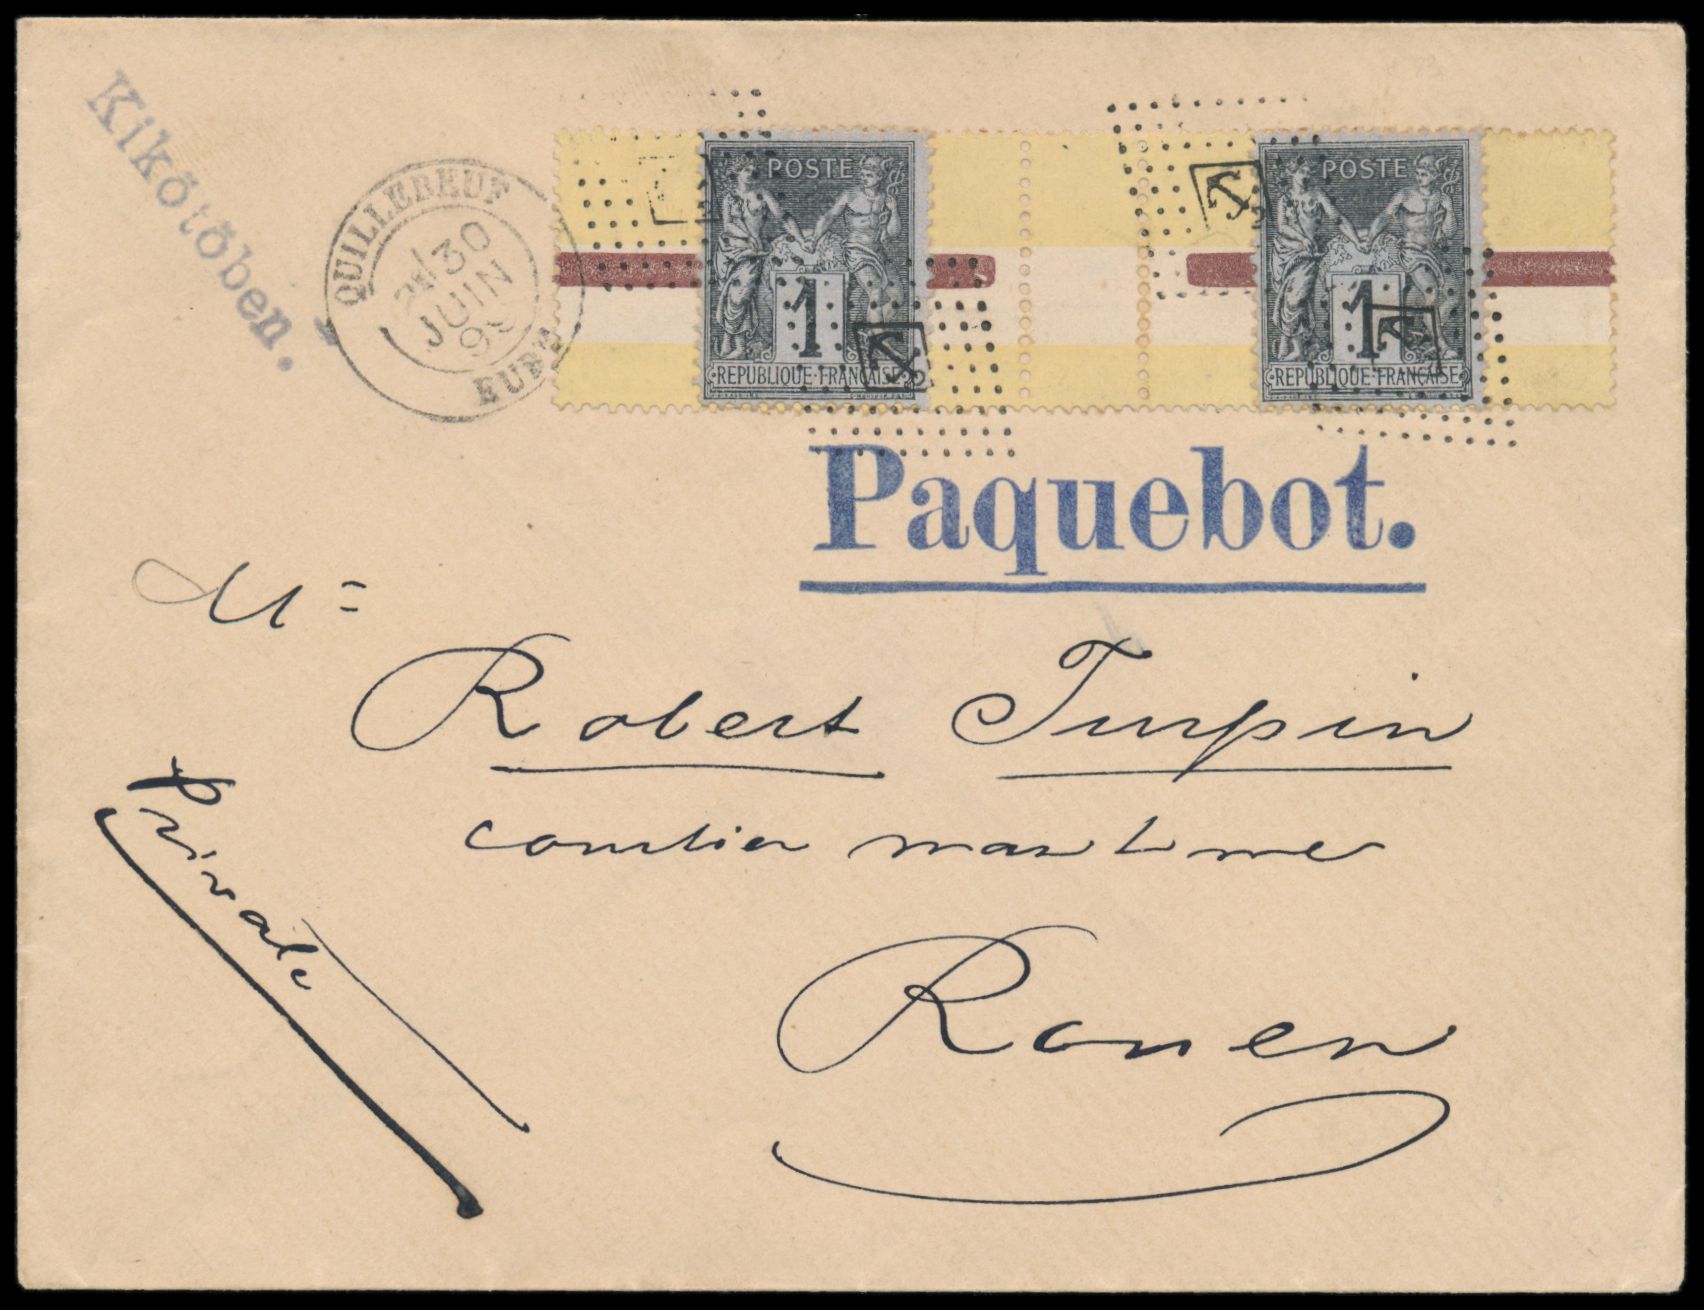 Kikötőben.
QUILLEBEUF
30
JUIN
9
EURE
POSTE
1
REPUBLIQUE·FRANÇAISE
POSTE
1
REPUBLIQUE·FRANÇAISE
Paquebot.
Mr
Robert Turpin
courtier maritime
Rouen
Privale